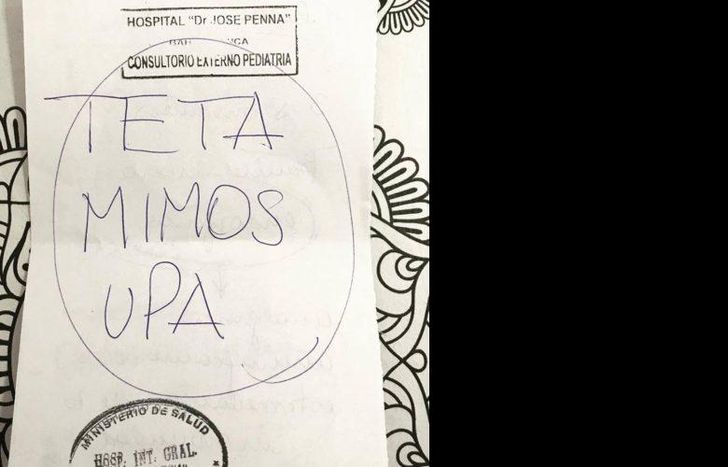 HOSPITAL "Dr JOSE PENNA"
CONSULTORIO EXTERNO PEDIATRIA
TETA
MIMOS
UPA
MINISTERIO DE SALUD
HOSP. INT. GRAL.